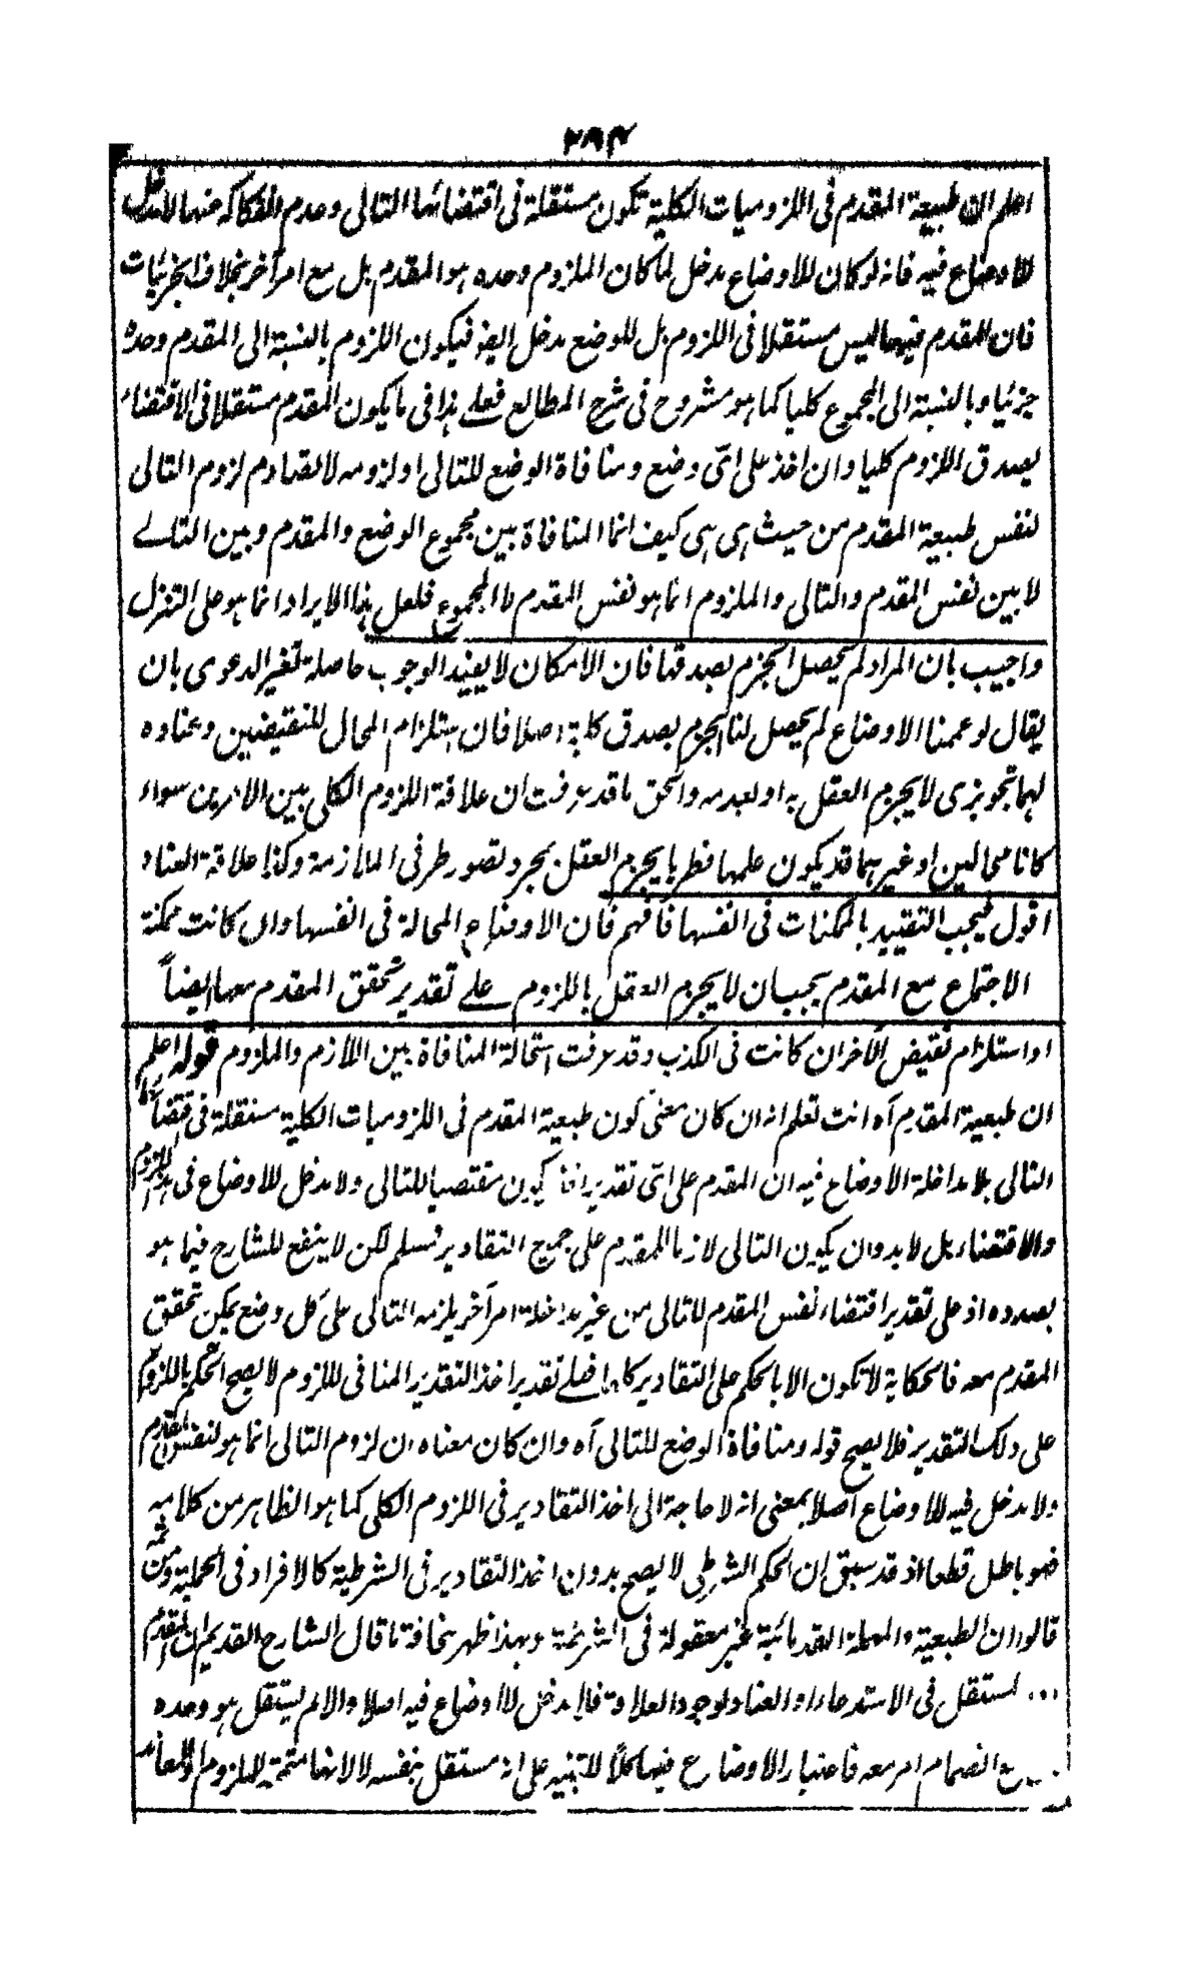 ۲۹۴
اعلم ان طبيعة المقدم فى اللزوميات الكلية تكون مستقلة فى اقتضائها التالى وعدم انفكاكه عنها لا مدخل
للاوضاع فيه فانه لو كان للاوضاع مدخل لما كان الملزوم وحده هو المقدم بل مع امر آخر بخلاف الجزئيات
فان المقدم فيها ليس مستقلا فى اللزوم بل للوضع مدخل ايضا فيكون اللزوم بالنسبة الى المقدم وحده
جزئيا وبالنسبة الى المجموع كليا كما هو مشروح فى شرح المطالع فعلے هذا فى ما يكون المقدم مستقلا فى الاقتضاء
يصدق اللزوم كليا وان اخذ على اىّ وضع ومنافاة الوضع للتالى او لزومه لا تصادم لزوم التالى
لنفس طبيعة المقدم من حيث هى هى كيف انما المنافاة بين مجموع الوضع والمقدم وبين التالے
لا بين نفس المقدم والتالى والملزوم انما هو نفس المقدم لا المجموع فلعل هذا الايراد انما هو على التنزل
واجيب بان المراد لم يحصل الجزم بصدقها فان الامكان لا يفيد الوجوب حاصله تغير الدعوى بان
يقال لو عممنا الاوضاع لم يحصل لنا الجزم بصدق كلية اصلا فان استلزام المحال للنقيضين وعناده
لهما تجويزى لا يجزم العقل به او بعدمه والحق ما قد عرفت ان علاقة اللزوم الكلى بين الامرين سواء
كانا محالين او غيرهما قد يكون علمها فطريا يجزم العقل بمجرد تصور طرفى الملازمة وكذا علاقة العناد
اقول فيجب التقييد بالممكنات فى انفسها فافهم فان الاوضاع المحالة فى انفسها وان كانت ممكنة
الاجتماع مع المقدم يجب ان لا يجزم العقل باللزوم علے تقدير تحقق المقدم معها ايضاً
او استلزام نقيض الآخر ان كانت فى الكذب وقد عرفت استحالة المنافاة بين اللازم والملزوم قوله اعلم
ان طبيعة المقدم آه انت تعلم انه ان كان معنى كون طبيعة المقدم فى اللزوميات الكلية مستقلة فى اقتضاء
التالى بلا مداخلة الاوضاع فيه ان المقدم على اىّ تقدير اخذ يكون مقتضيا للتالى ولا مدخل للاوضاع فى هذا اللزوم
والاقتضاء بل لا بد وان يكون التالى لازما للمقدم على جميع التقادير فمسلم لكن لا ينفع للشارح فيما هو
بصدده اذ على تقدير اقتضاء نفس المقدم للتالى من غير مداخلة امر آخر يلزمه التالى على كل وضع يمكن تحقق
المقدم معه فالحكاية لا تكون الا بالحكم على التقادير كلها فعلے تقدير اخذ التقدير المنافى للزوم لا يصح الحكم باللزوم
على ذلك التقدير فلا يصح قوله ومنافاة الوضع للتالى آه وان كان معناه ان لزوم التالى انما هو لنفس المقدم
ولا مدخل فيه للاوضاع اصلا بمعنى انه لا حاجة الى اخذ التقادير فى اللزوم الكلى كما هو الظاهر من كلامه
فهو باطل قطعا اذ قد سبق ان الحكم الشرطى لا يصح بدون اخذ التقادير فى الشرطية كالافراد فى الحملية ومن ثمه
قالوا ان الطبعية والمهملة القدمائية غير معقولة فى الشرطية وبهذا ظهر سخافة ما قال الشارح القديم ان المقدم
... لستقل فى الاستدعاء او العناد لوجود العلاقة فلا مدخل للاوضاع فيه اصلا والا لم يستقل هو وحده
مع انضمام امر معه فاعتبار الاوضاع فيها كلاً للتنبيه على انه مستقل بنفسه لا لانها متممة للملزوم او المعاند